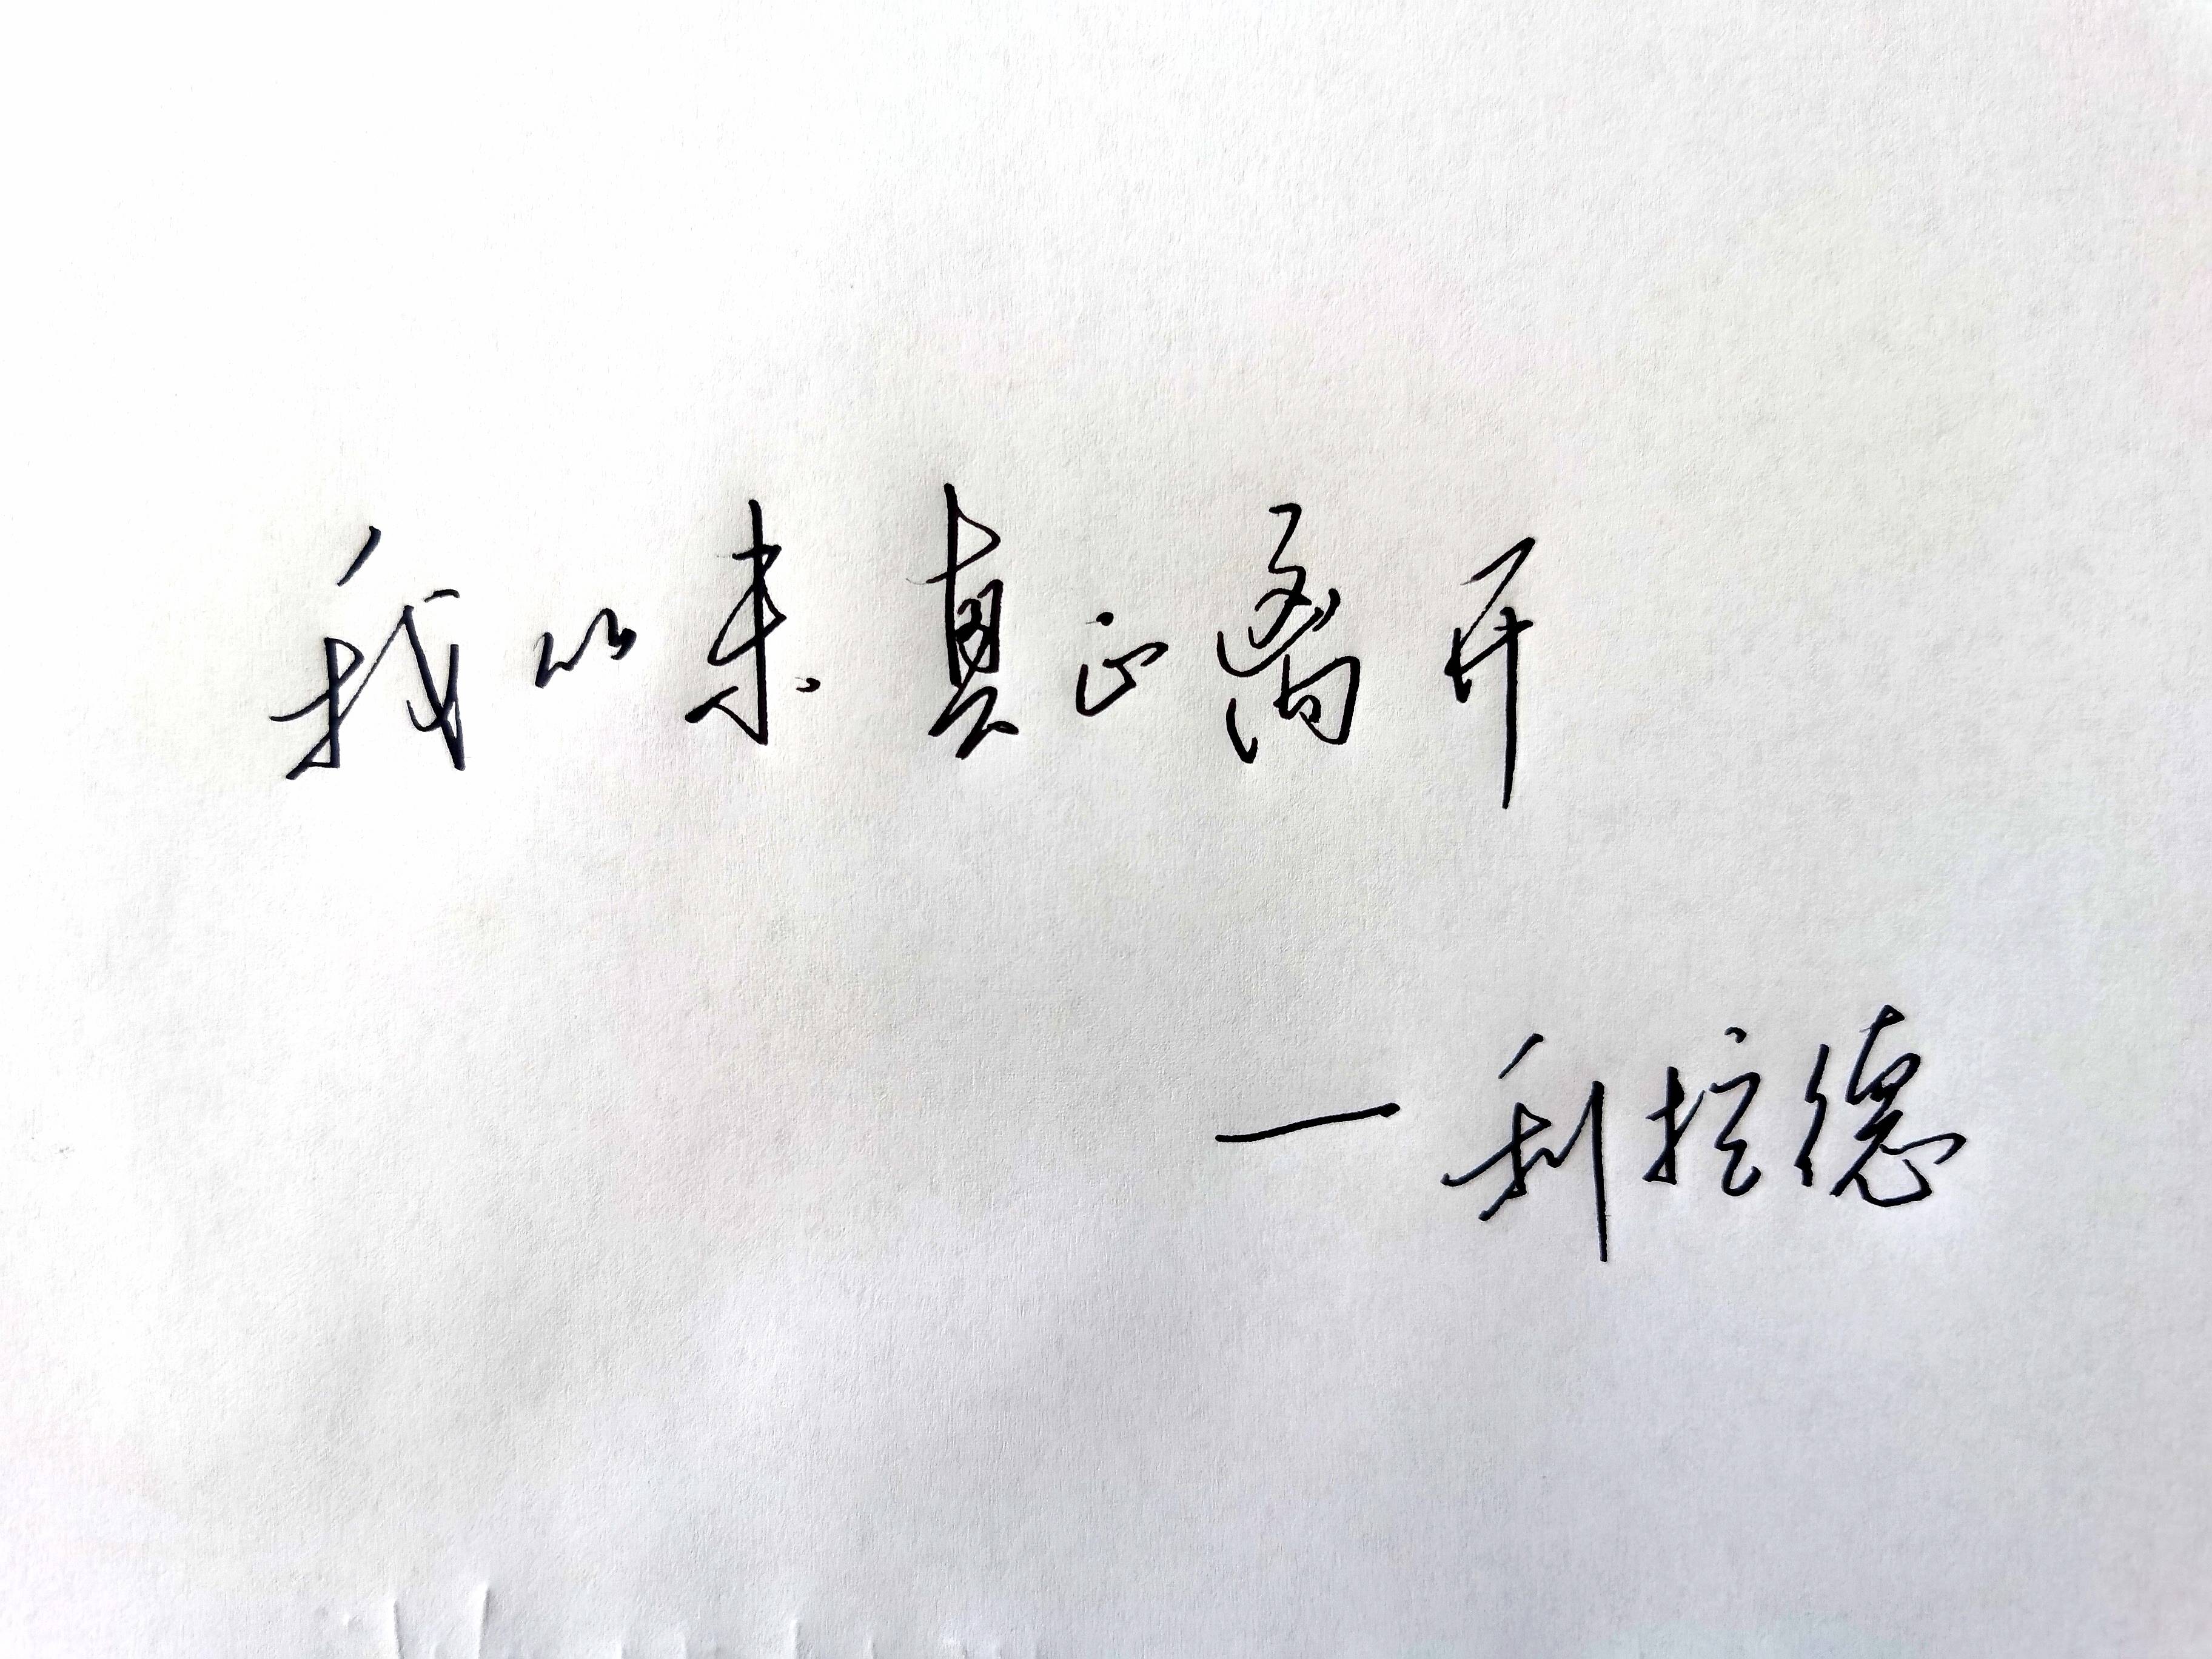 我从未真正离开
—利拉德